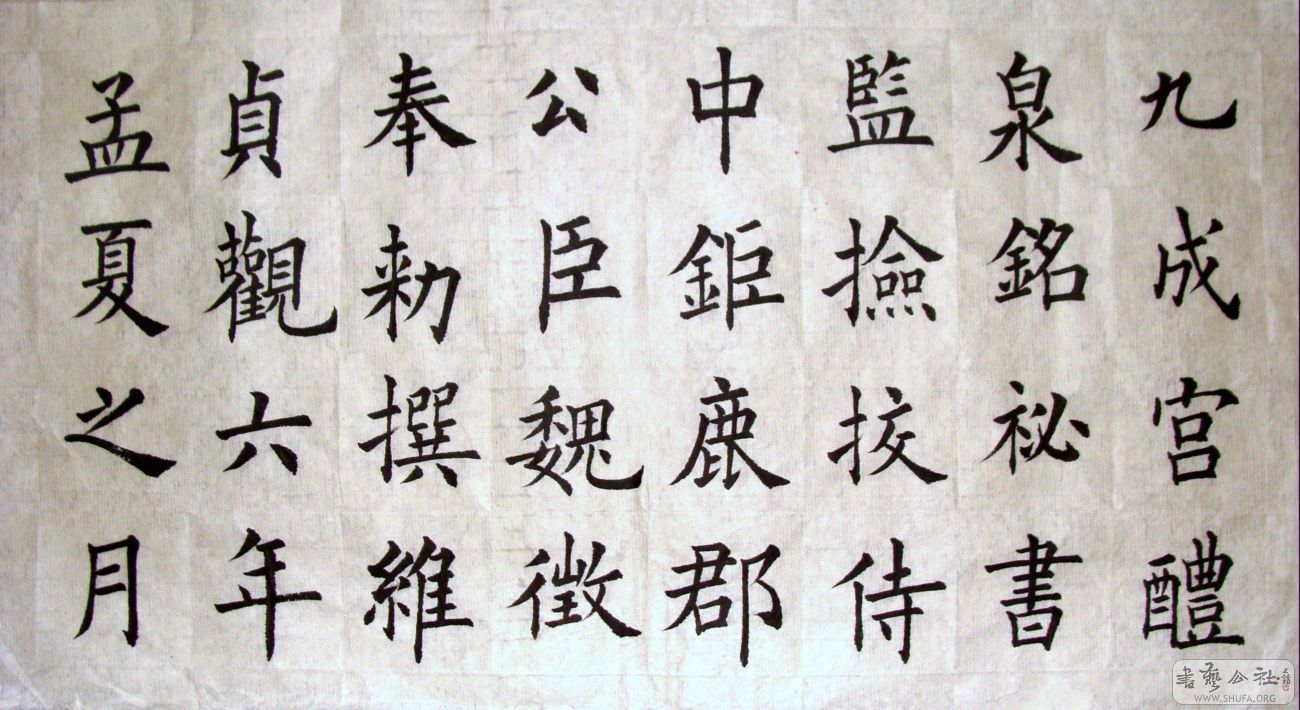 九成宫醴
泉銘祕書
監撿挍侍
中鉅鹿郡
公臣魏徴
奉勑撰維
貞觀六年
孟夏之月
書藝公社
WWW.SHUFA.ORG